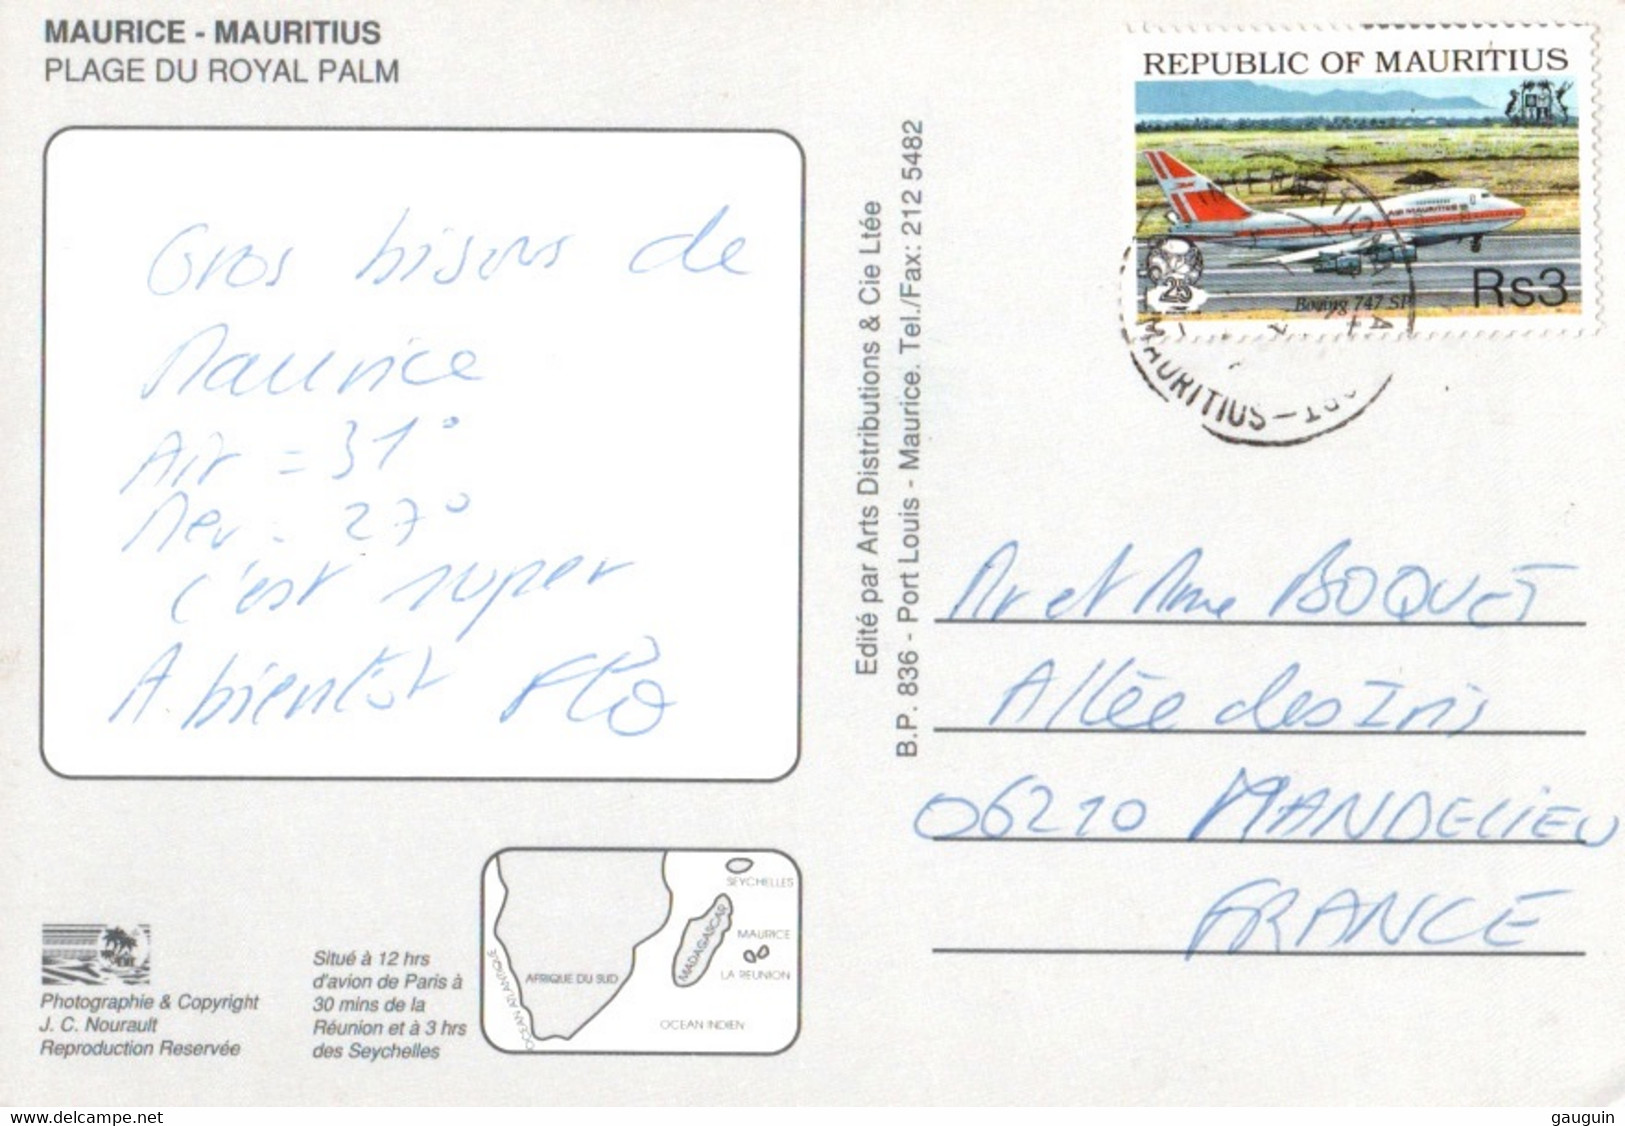 MAURICE - MAURITIUS
PLAGE DU ROYAL PALM
Gros bisous de
Maurice
Air = 31°
Mer = 27°
c'est super
A bientôt Flo
Photographie & Copyright
J. C. Nourault
Reproduction Reservée
Situé à 12 hrs
d'avion de Paris à
30 mins de la
Réunion et à 3 hrs
des Seychelles
SEYCHELLES
MADAGASCAR
MAURICE
LA REUNION
AFRIQUE DU SUD
OCEAN ATLANTIQUE
OCEAN INDIEN
Edité par Arts Distributions & Cie Ltée
B.P. 836 - Port Louis - Maurice. Tel./Fax: 212 5482
REPUBLIC OF MAURITIUS
AIR MAURITIUS
25
Boeing 747 SP
Rs3
MAURITIUS
Mr et Mme BOQUET
Allée des Iris
06210 MANDELIEU
FRANCE
www.delcampe.net
gauguin